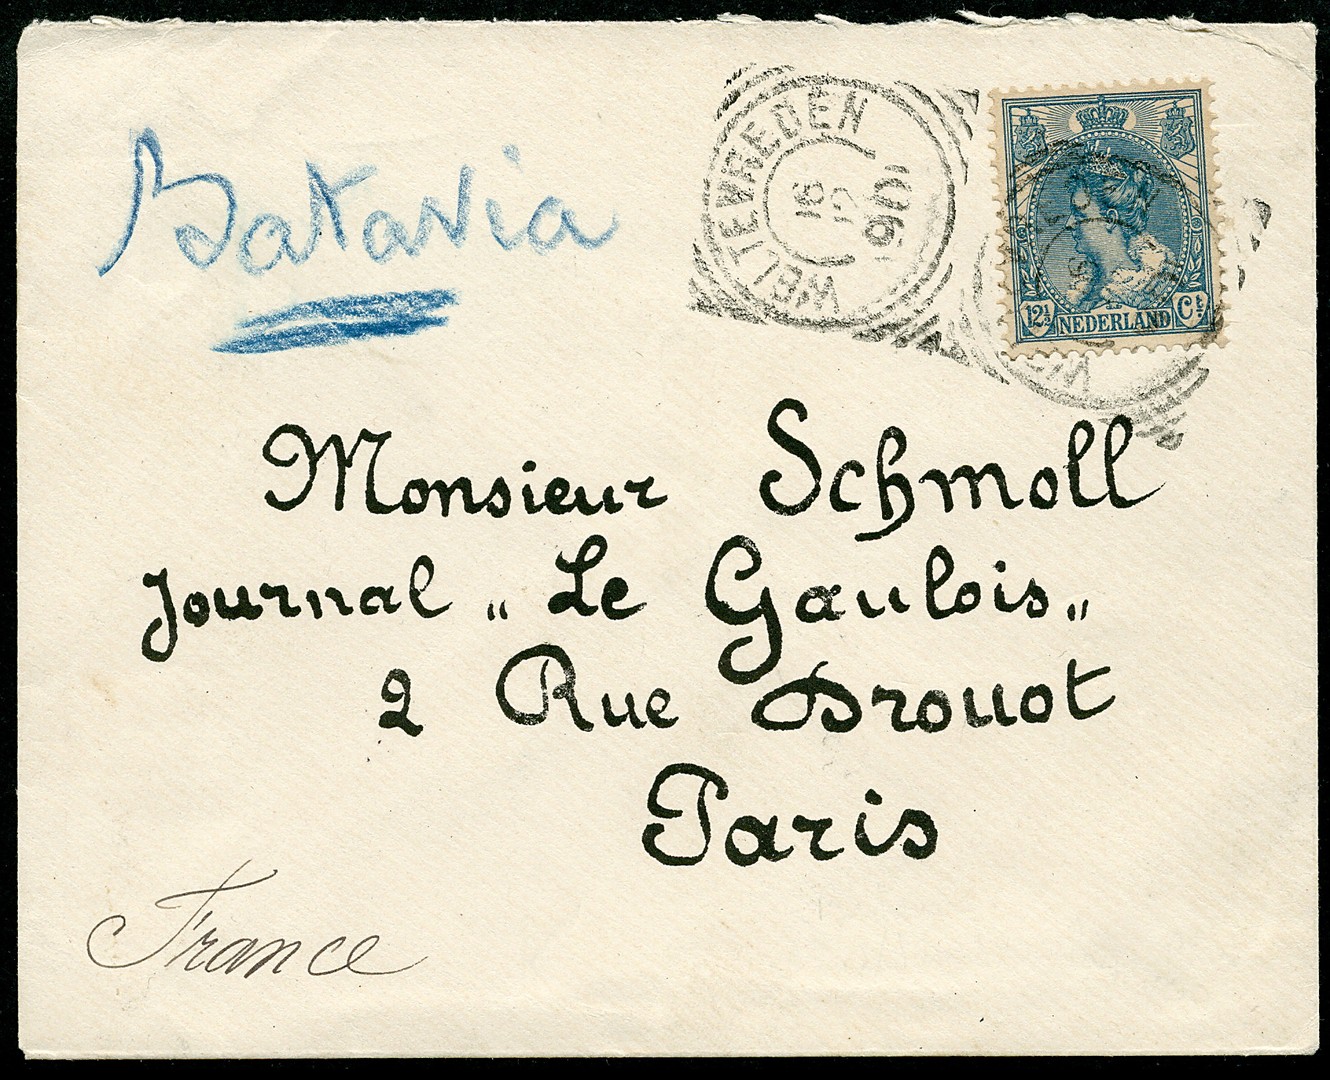 Batavia
WELTEVREDEN
16
12
906
12½ NEDERLAND Ct
Monsieur Schmoll
Journal „ Le Gaulois „
2 Rue Drouot
Paris
France